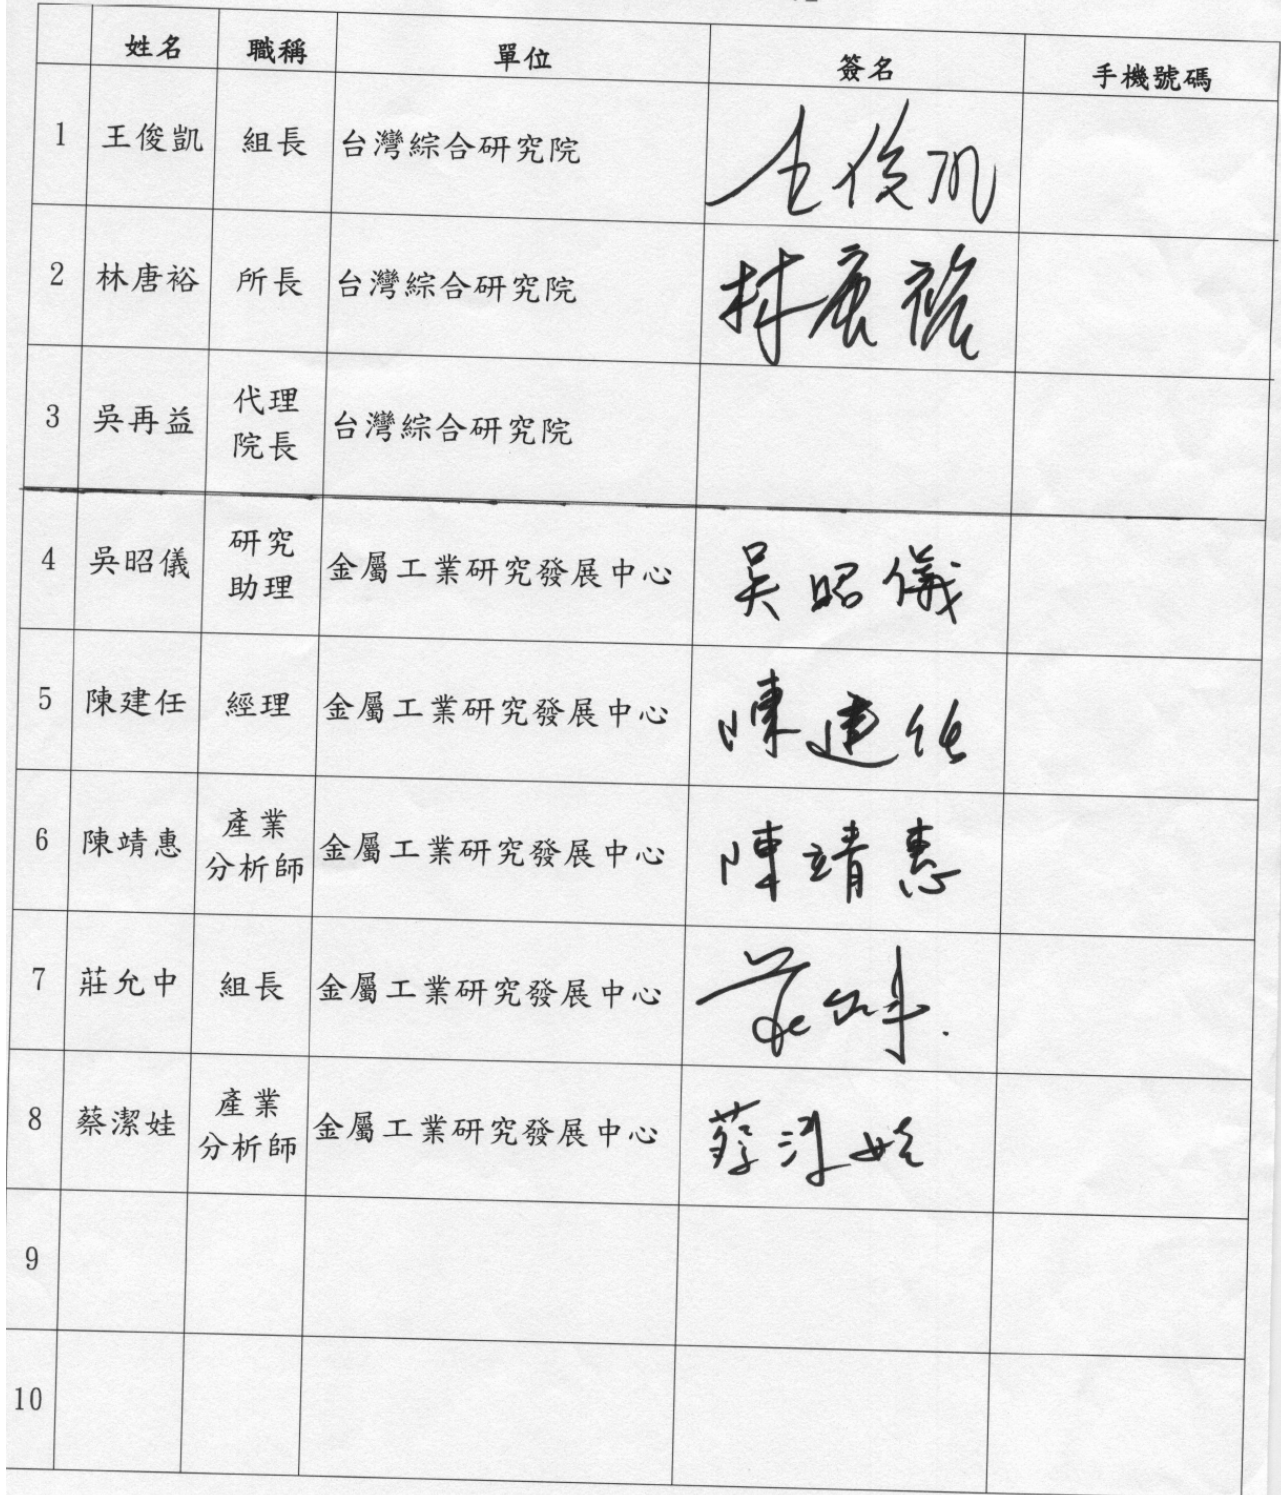 姓名 職稱 單位 簽名 手機號碼
1 王俊凱 組長 台灣綜合研究院 王俊凱
2 林唐裕 所長 台灣綜合研究院 林唐裕
3 吳再益 代理
院長 台灣綜合研究院
4 吳昭儀 研究
助理 金屬工業研究發展中心 吳昭儀
5 陳建任 經理 金屬工業研究發展中心 陳建任
6 陳靖惠 產業
分析師 金屬工業研究發展中心 陳靖惠
7 莊允中 組長 金屬工業研究發展中心 莊允中
8 蔡潔娃 產業
分析師 金屬工業研究發展中心 蔡潔娃
9
10